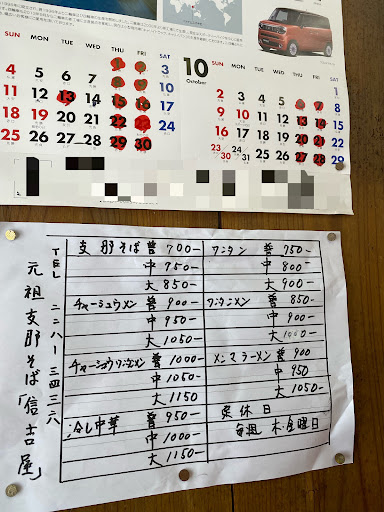 SUN MON TUE WED THU FRI SAT
4 5 6 7 8 9 10
11 12 13 14 15 16 17
18 19 20 21 22 23 24
25 26 27 28 29 30
10
October
SUN MON TUE WED THU FRI SAT
1
2 3 4 5 6 7 8
9 10 11 12 13 14 15
16 17 18 19 20 21 22
23 24 25 26 27 28 29
30 31
元祖支那そば「信古屋」
TEL 二二八ー三四三六
支那そば 普 700-
中 750-
大 850-
チャーシュウメン 普 900-
中 950-
大 1050-
チャーシュウワンタンメン 普 1000-
中 1050-
大 1150
冷し中華 普 950-
中 1000-
大 1150-
ワンタン 普 750-
中 800-
大 900-
ワンタンメン 普 850-
中 900-
大 1000-
メンマラーメン 普 900
中 950
大 1050-
定休日
毎週 木・金曜日